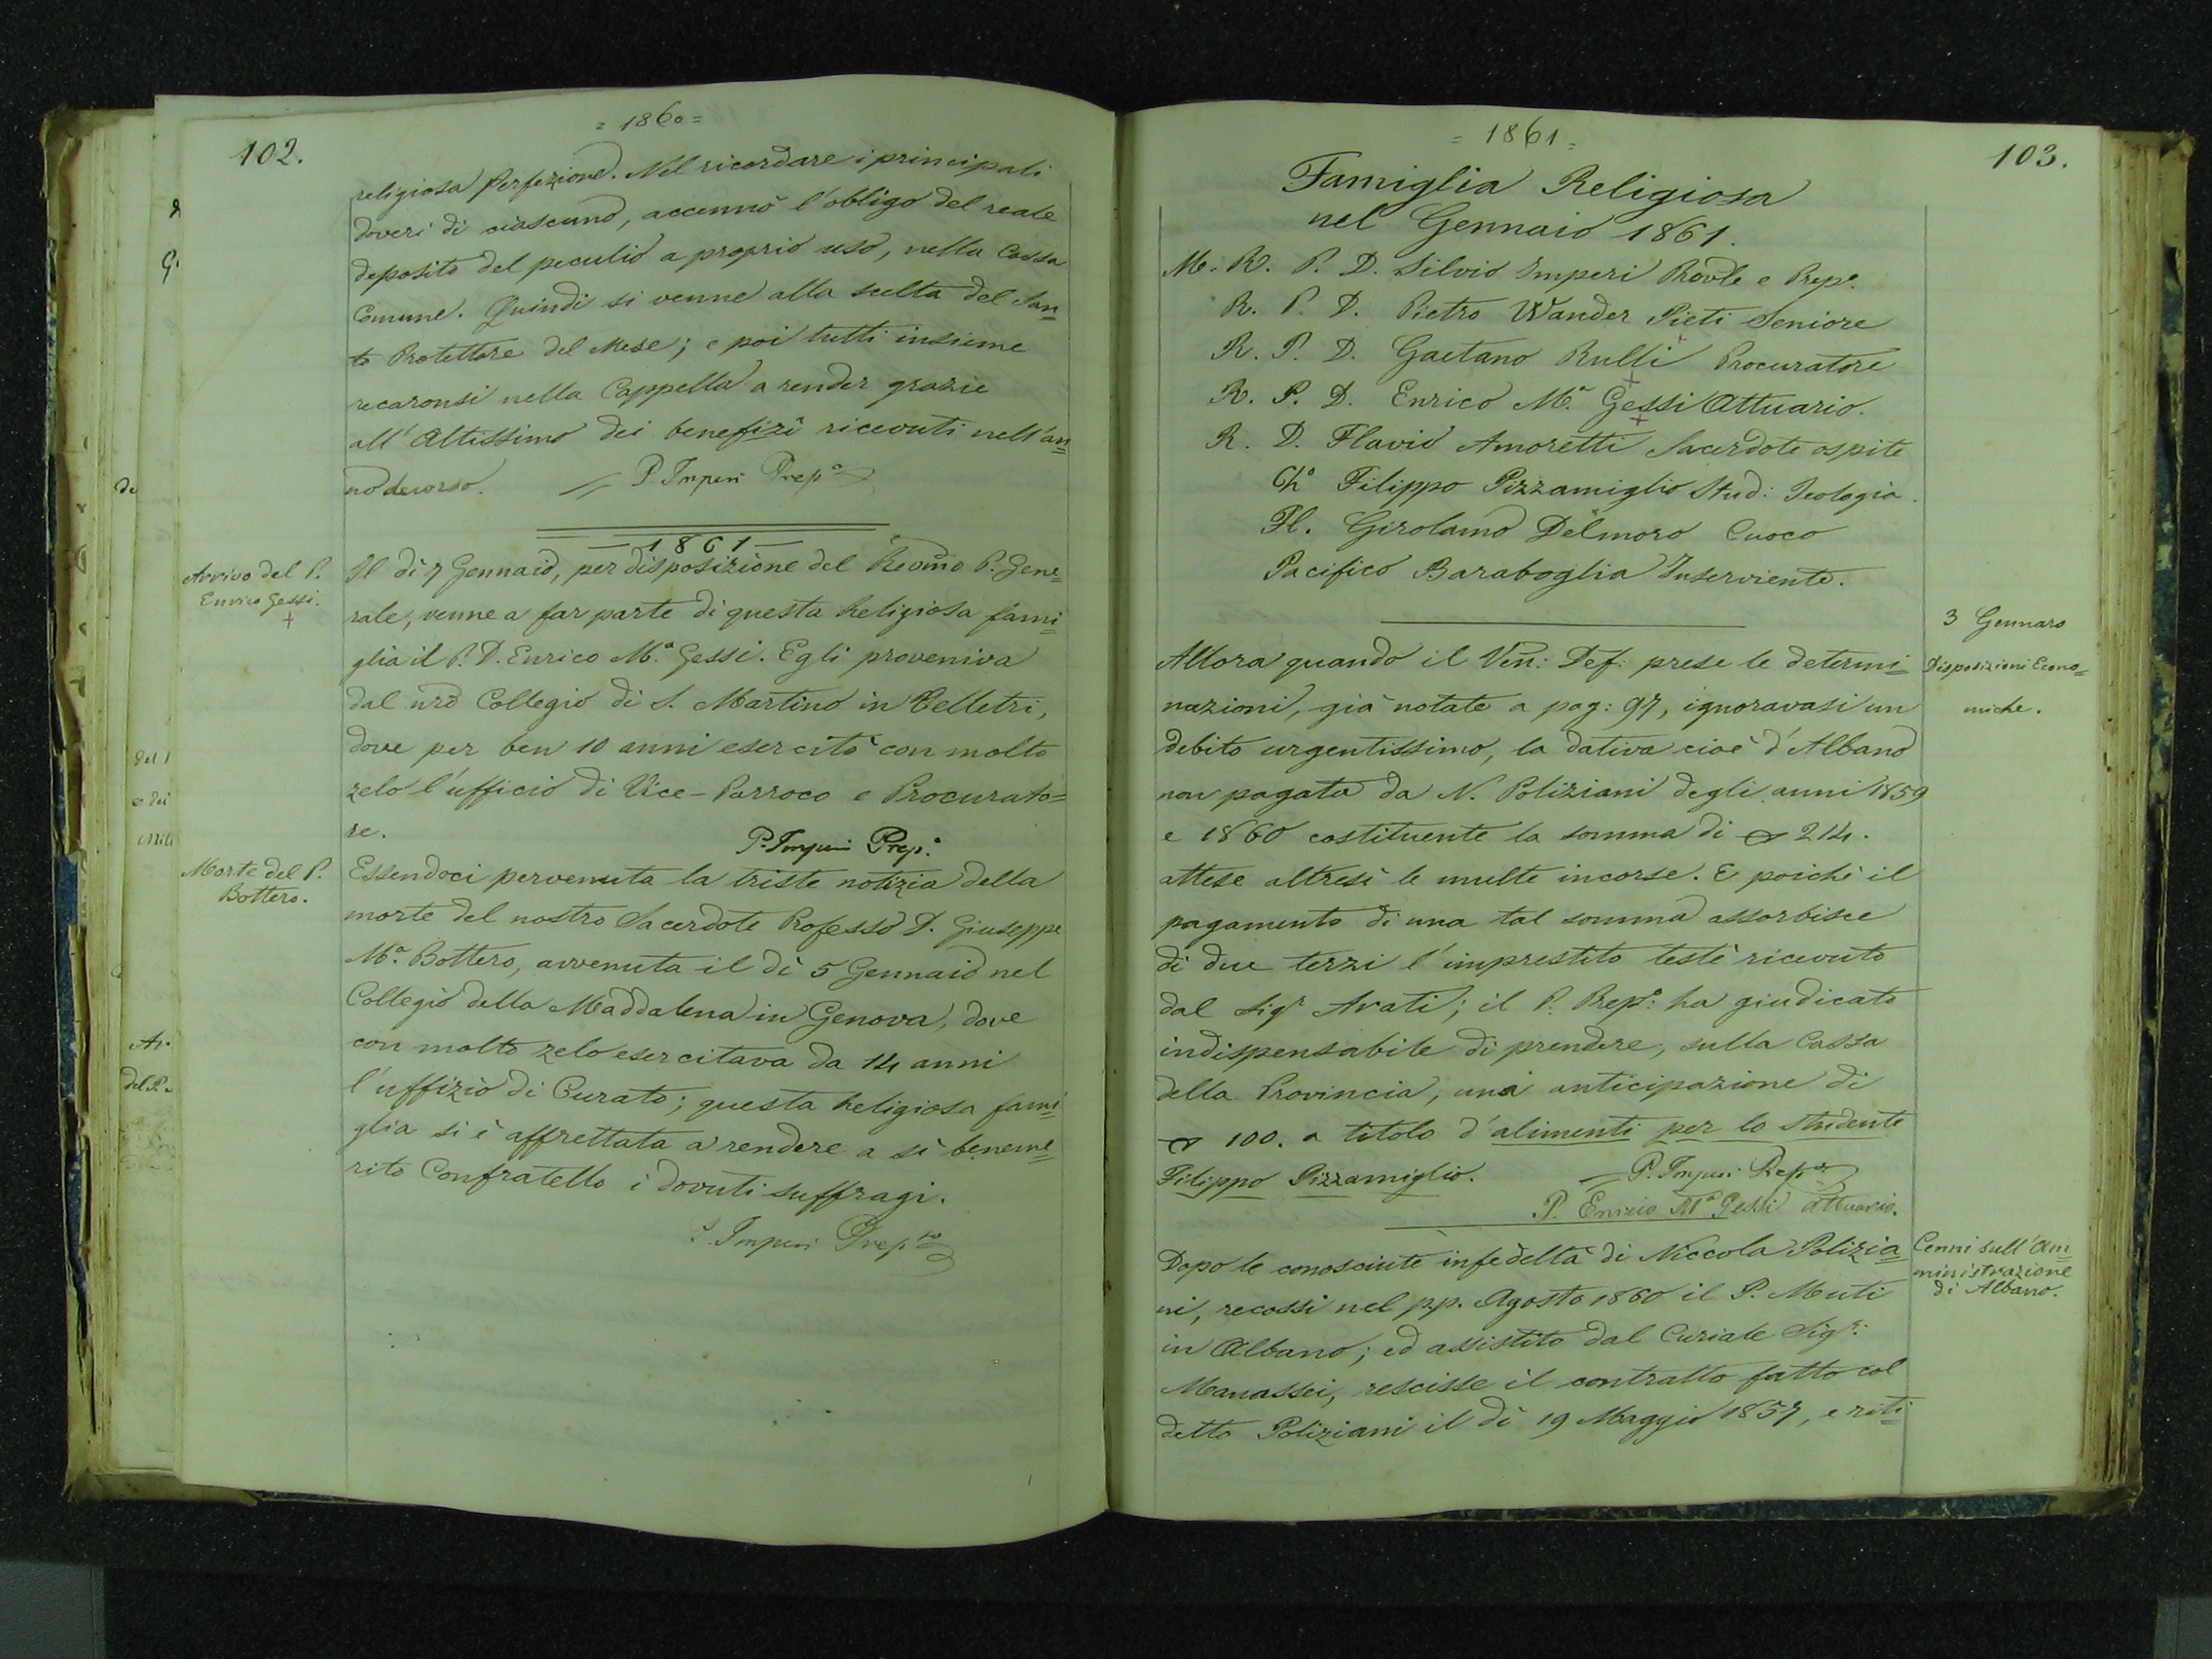 102.
= 1860 =
religiosa perfezione. Nel ricordare i principali
doveri di ciascuno, accennò l'obligo del reale
deposito del peculio a proprio uso, nella Cassa
Comune. Quindi si venne alla scelta del San=
to Protettore del Mese; e poi tutti insieme
recaronsi nella Cappella a render grazie
all'Altissimo dei benefizî ricevuti nell'an=
no decorso. P. Imperi Prep.o
— 1861 —
Arrivo del P.
Enrico Gessi.
+
Il dì 7 Gennaio, per disposizione del Revmo P. Gene=
rale, venne a far parte di questa Religiosa fami=
glia il P. D. Enrico M.a Gessi. Egli proveniva
dal nro Collegio di S. Martino in Velletri,
dove per ben 10 anni esercitò con molto
zelo l'ufficio di Vice-Parroco e Procurato=
re. P. Imperi Prep.o
Morte del P.
Bottero.
Essendoci pervenuta la triste notizia della
morte del nostro Sacerdote Professo D. Giuseppe
M.a Bottero, avvenuta il dì 5 Gennaio nel
Collegio della Maddalena in Genova, dove
con molto zelo esercitava da 14 anni
l'uffizio di Curato; questa Religiosa fami=
glia si è affrettata a rendere a sì beneme=
rito Confratello i dovuti suffragi.
P. Imperi Prep.to
= 1861 =
103.
Famiglia Religiosa
nel Gennaio 1861.
M. R. P. D. Silvio Imperi Provle e Prep.o
R. P. D. Pietro Wander Pieti Seniore
R. P. D. Gaetano Rulli Procuratore
R. P. D. Enrico M.a Gessi Attuario.
R. D. Flavio Amoretti Sacerdote ospite
Ch.o Filippo Pizzamiglio Stud: Teologia.
Fl. Girolamo Delmoro Cuoco
Pacifico Baraboglia Inserviente.
3 Gennaro
Disposizioni Econo=
miche.
Allora quando il Ven: Def: prese le determi=
nazioni, già notate a pag: 97, ignoravasi un
debito urgentissimo, la dativa cioè d'Albano
non pagata da N. Poliziani degli anni 1859
e 1860 costituente la somma di 214.
attese altresì le multe incorse. E poichè il
pagamento di una tal somma assorbisce
di due terzi l'imprestito testè ricevuto
dal Sigr Avati; il P. Prep:o ha giudicato
indispensabile di prendere, sulla Cassa
della Provincia, una anticipazione di
100. a titolo d'alimenti per lo Studente
Filippo Pizzamiglio. P. Imperi Prep.o
P. Enrico M.a Gessi attuario.
Cenni sull'Am=
ministrazione
di Albano.
Dopo le conosciute infedeltà di Niccola Polizia=
ni, recossi nel pp. Agosto 1860 il P. Muti
in Albano; ed assistito dal Curiale Sigr:
Manassei, rescisse il contratto fatto col
detto Poliziani il dì 19 Maggio 1857, e riti=